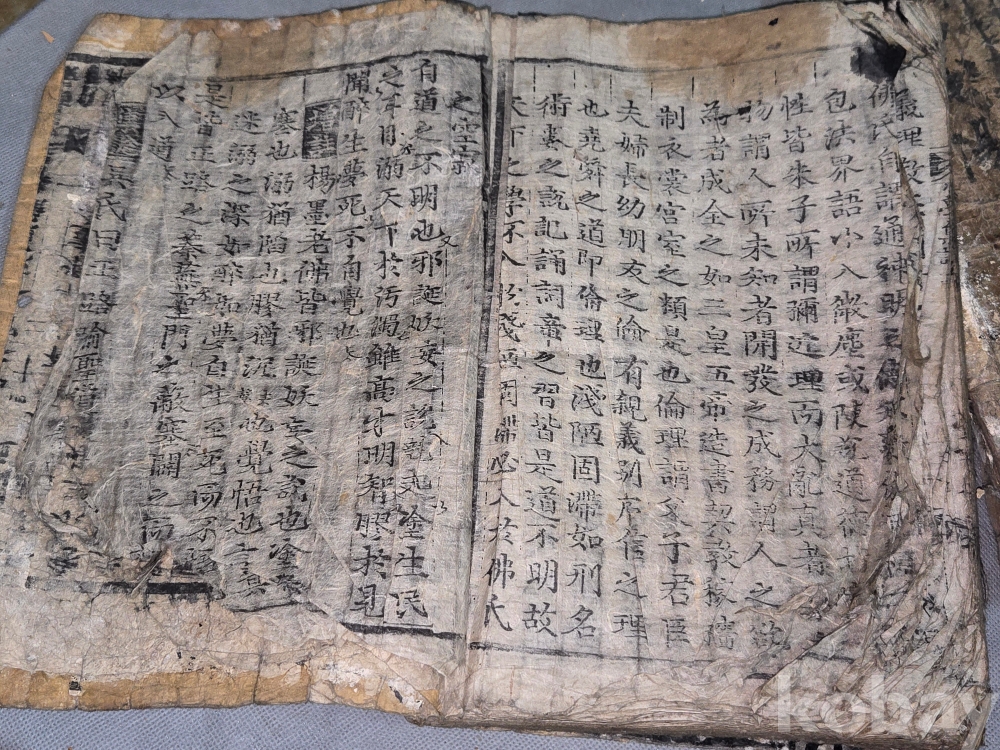 佛氏自謂通神明之德
包法界語小入微塵或陳道德
性皆朱子所謂彌近理而大亂真者
物謂人所未知者開發之成務謂人之欲
為者成全之如三皇五帝造書契教稼穡
制衣裳宮室之類是也倫理謂父子君臣
夫婦長幼朋友之倫有親義別序信之理
也堯舜之道即倫理也淺陋固滯如刑名
術數之說記誦詞章之習皆是道不明故
天下之學不入於淺陋固滯必入於佛氏
之空寂
自道之不明也邪誕妖妄之說競起塗生民
之耳目溺天下於汚濁雖高才明智膠於見
聞醉生夢死不自覺也
集說楊墨老佛皆邪誕妖妄之說也塗猶
塞也溺猶陷也膠猶沉也覺悟也言其
迷溺之深如醉如夢自生至死而不覺
是皆正路之蓁蕪聖門之蔽塞闢之而
以入道
集解吳氏曰正路喻聖賢
kobay